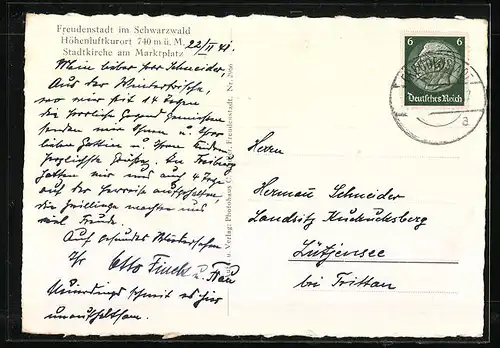 Freudenstadt im Schwarzwald
Höhenluftkurort 740 m ü. M.
Stadtkirche am Marktplatz
22/II 41.
Mein lieber Herr Schneider,
Aus der Winterfrische,
wo wir seit 14 Tagen
die herrliche Gegend geniessen
senden wir Ihnen u. Ihrer
lieben Gattin u. Ihren Kindern
herzlichste Grüße. In Freiburg
hatten wir uns auf 4 Tage
auf der Herreise aufgehalten,
die Zwillinge machten uns
viel Freude.
Auf gesundes Wiedersehn
Otto Finck u. Frau
Neuerdings schneit es hier
unaufhaltsam.
u. Verlag: Photohaus Freudenstadt. Nr. 2986
6 6
Deutsches Reich
a
Herrn
Hermann Schneider
Landsitz Kuckucksberg
Lütjensee
bei Trittau